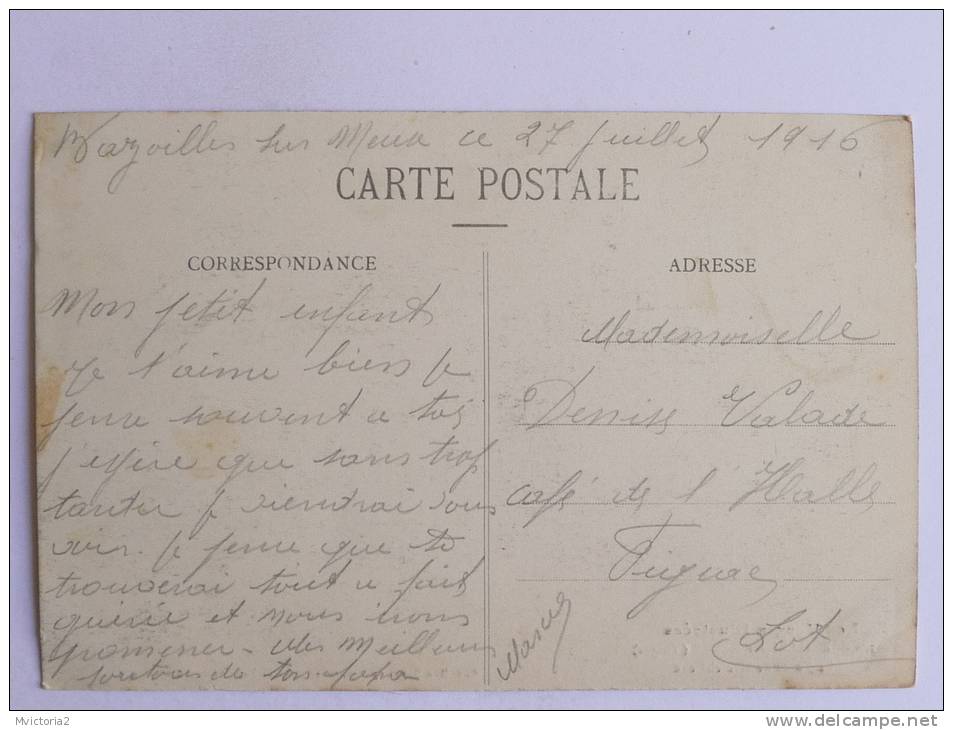 Bazoilles sur Meuse ce 27 Juillet 1916
CARTE POSTALE
CORRESPONDANCE
Mon petit enfant
Je t'aime bien je
pense souvent a toi
j'espère que sans trop
tarder je viendrai vous
voir. Je pense que tu
trouverai tout a fait
guérie et nous irons
promener - des meilleurs
de ton papa
Marcel
ADRESSE
Mademoiselle
Denise Valade
café de l'Halle
Figeac
Lot
Mvictoria2
www.delcampe.net